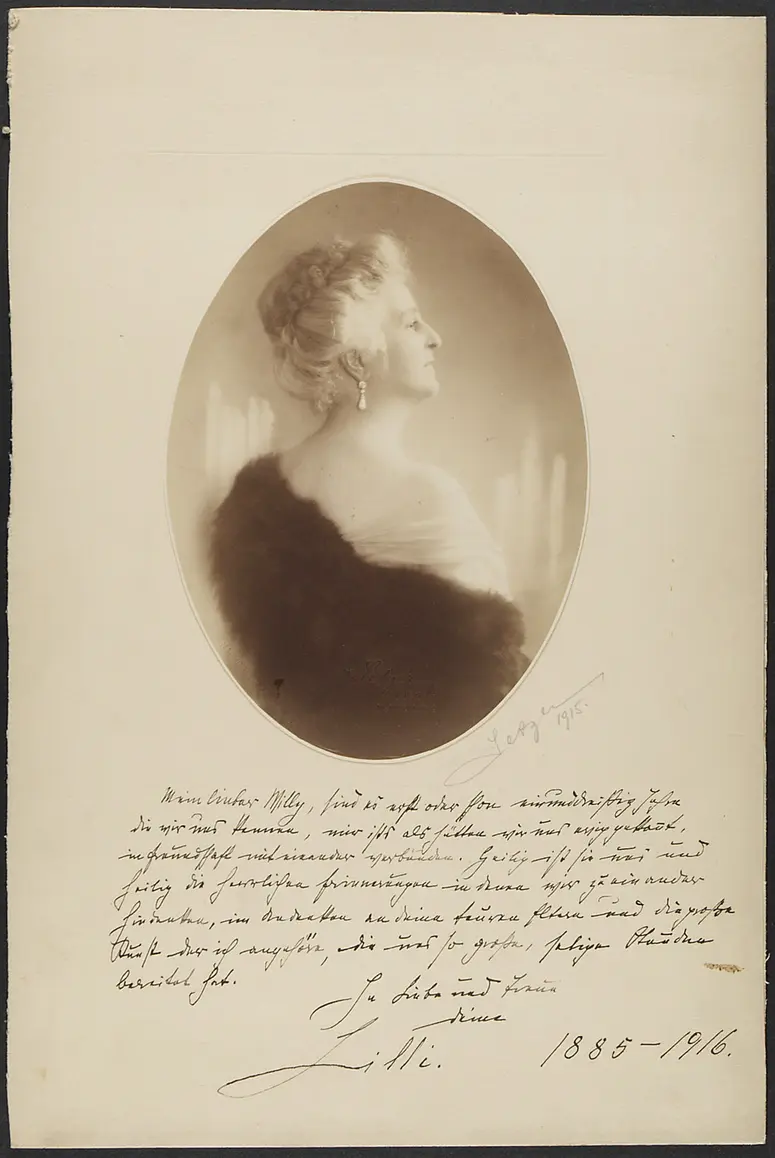 Setzer
1915.
Mein lieber Willy, sind es erst oder schon einunddreißig Jahre
die wir uns kennen, mir ists als hätten wir uns ewig gekannt,
in Freundschaft mit einander verbunden. Heilig ist sie uns und
heilig die herrlichen Erinnerungen in denen wir zu einander
hindenken, im Andenken an deine teuren Eltern und die große
Kunst der ich angehöre, die uns so große, selige Stunden
bereitet hat.
In Liebe und Treue
deine
Lilli. 1885-1916.